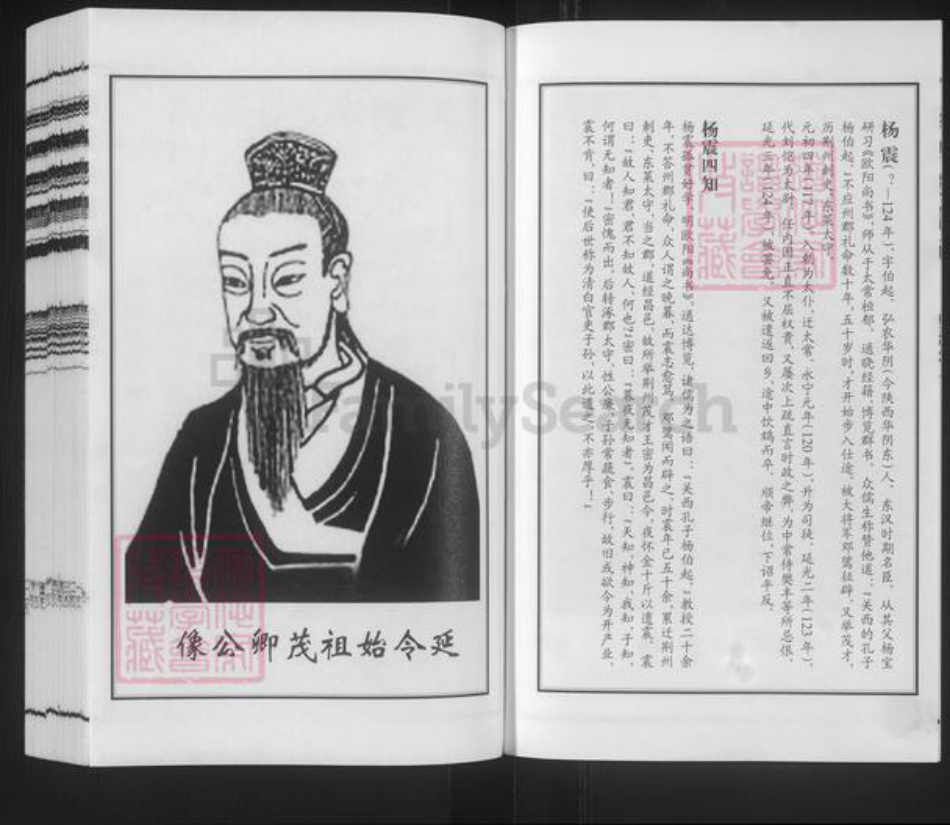 杨震(？—124年)，字伯起。弘农华阴(今陕西华阴东)人。东汉时期名臣。从其父杨宝
研习《欧阳尚书》，师从于太常桓郁，通晓经籍，博览群书，众儒生称赞他道：“关西的孔子
杨伯起。”不应州郡礼命数十年，五十岁时，才开始步入仕途。被大将军邓骘征辟，又举茂才，
历荆州刺史、东莱太守。
元初四年(117年)，入朝为太仆，迁太常。永宁元年(120年)，升为司徒。延光二年(123年)，
代刘恺为太尉。任内因正直不屈权贵，又屡次上疏直言时政之弊，为中常侍樊丰等所忌恨。
延光三年(124年)被罢免。又被遣返回乡，途中饮鸩而卒。顺帝继位，下诏平反。
杨震四知
杨震孤贫好学，明欧阳《尚书》，通达博览，诸儒为之语曰：“关西孔子杨伯起。”教授二十余
年，不答州郡礼命，众人谓之晚暮，而震志愈笃。邓骘闻而辟之，时震年已五十余，累迁荆州
刺史、东莱太守。当之郡，道经昌邑，故所举荆州茂才王密为昌邑令，夜怀金十斤以遗震。震
曰：“故人知君，君不知故人，何也？”密曰：“暮夜无知者。”震曰：“天知，神知，我知，子知，
何谓无知者！”密愧而出。后转涿郡太守。性公廉，子孙常蔬食、步行，故旧或欲令为开产业，
震不肯，曰：“使后世称为清白官吏子孙，以此遗之，不亦厚乎！”
延令始祖茂卿公像
FamilySearch